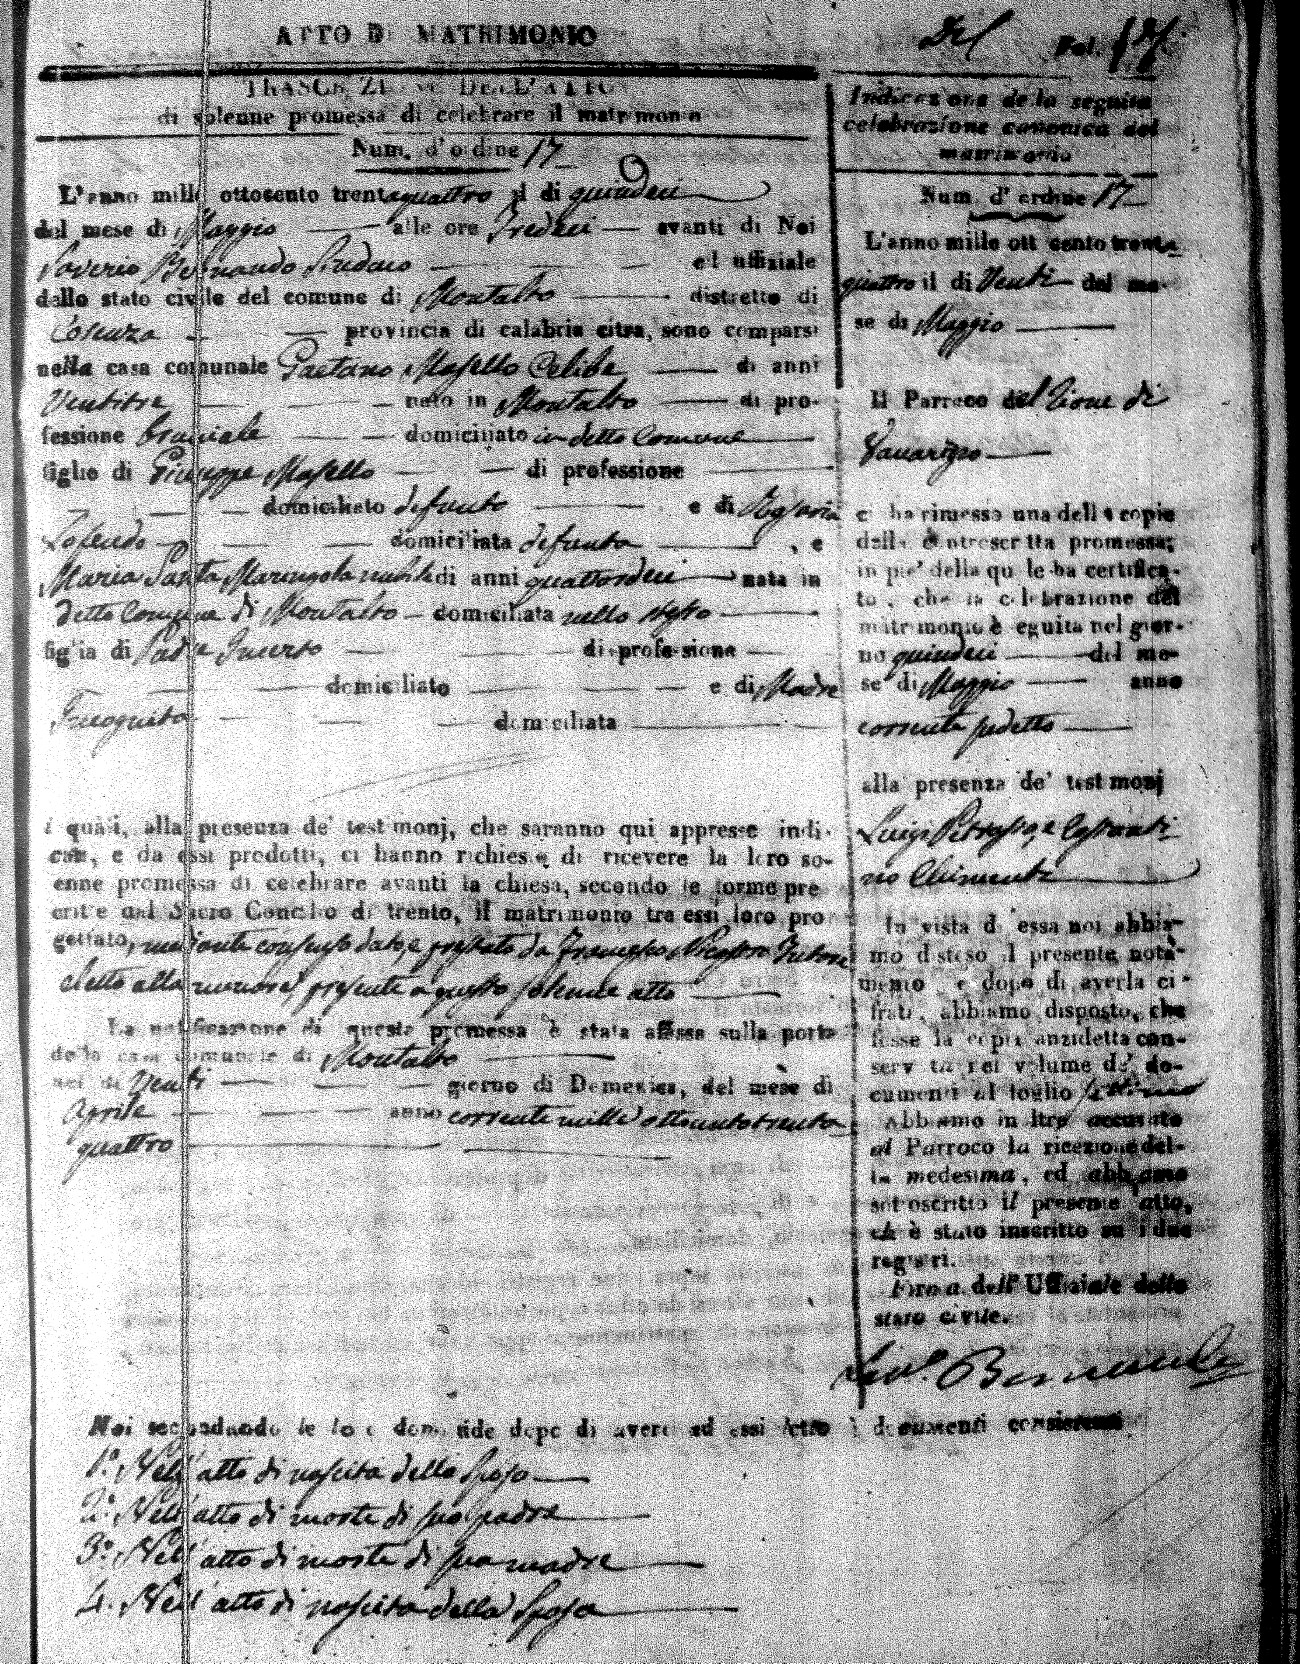 ATTO DI MATRIMONIO
TRASCRIZIONE DELL'ATTO
di solenne promessa di celebrare il matrimonio
Num. d'ordine 17
L'anno mille ottocento trentaquattro il di quindeci
del mese di Maggio alle ore Tredeci avanti di Noi
Saverio Bernardo ed uffiziale
dello stato civile del comune di Montalto distretto di
Cosenza provincia di calabria citra, sono comparsi
nella casa comunale Gaetano Masello Celibe di anni
Ventitre nato in Montalto di pro-
fessione bracciale domiciliato in detto Comune
figlio di Giuseppe Masello di professione
domiciliato defunto e di Rosaria
domiciliata defunta , e
Maria Santa nubile di anni quattordeci nata in
detto Comune di Montalto domiciliata nello stesso
figlia di Padre Incerto di professione
domiciliato e di Madre
Incognita domiciliata
i quali, alla presenza de' testimonj, che saranno qui appresse indi-
cati, e da essi prodotti, ci hanno richiesto di ricevere la loro so-
enne promessa di celebrare avanti la chiesa, secondo le forme pre
critte dal Sacro Concilio di trento, il matrimonio tra essi loro pro
gettato, mediante consenso dato, e prestato da Francesco Tutore
eletto alla minore, presente a questo solenne atto
La notificazione di questa promessa è stata affissa sulla porta
della casa comunale di Montalto
nel di Venti giorno di Domenica, del mese di
Aprile anno corrente mille ottocentotrenta
quattro
Noi secondando le loro domande dopo di avere ad essi letto i documenti consistenti
1.° Nell'atto di nascita dello Sposo
2.° Nell'atto di morte di suo padre
3.° Nell'atto di morte di sua madre
4. Nell'atto di nascita della Sposa
Del Fol.
Indicazione de la seguita
celebrazione canonica del
matrimonio
Num. d' ordine 17
L'anno mille ott cento trenta
quattro il di Venti del me-
se di Maggio
Il Parroco del Rione di
ci ha rimesso una delle copie
della controscritta promessa;
in pie' della quale ha certifica-
to, che la celebrazione del
matrimonio è seguita nel gior-
no quindeci del me-
se di Maggio anno
corrente sudetto
alla presenza de' testimonj
Luigi Petrassi, e Costanti
no Chimenti
In vista di essa noi abbia-
mo disteso il presente nota-
mento, e dopo di averla ci-
frata, abbiamo disposto, che
fosse la copia anzidetta con-
servata nel volume de' do-
cumenti al foglio settimo
Abbiamo in ltre accusato
al Parroco la ricezione del-
la medesima, ed abbiamo
sottoscritto il presente atto,
ch è stato inscritto su i due
registri.
Firma dell' Uffiziale dello
stato civile.